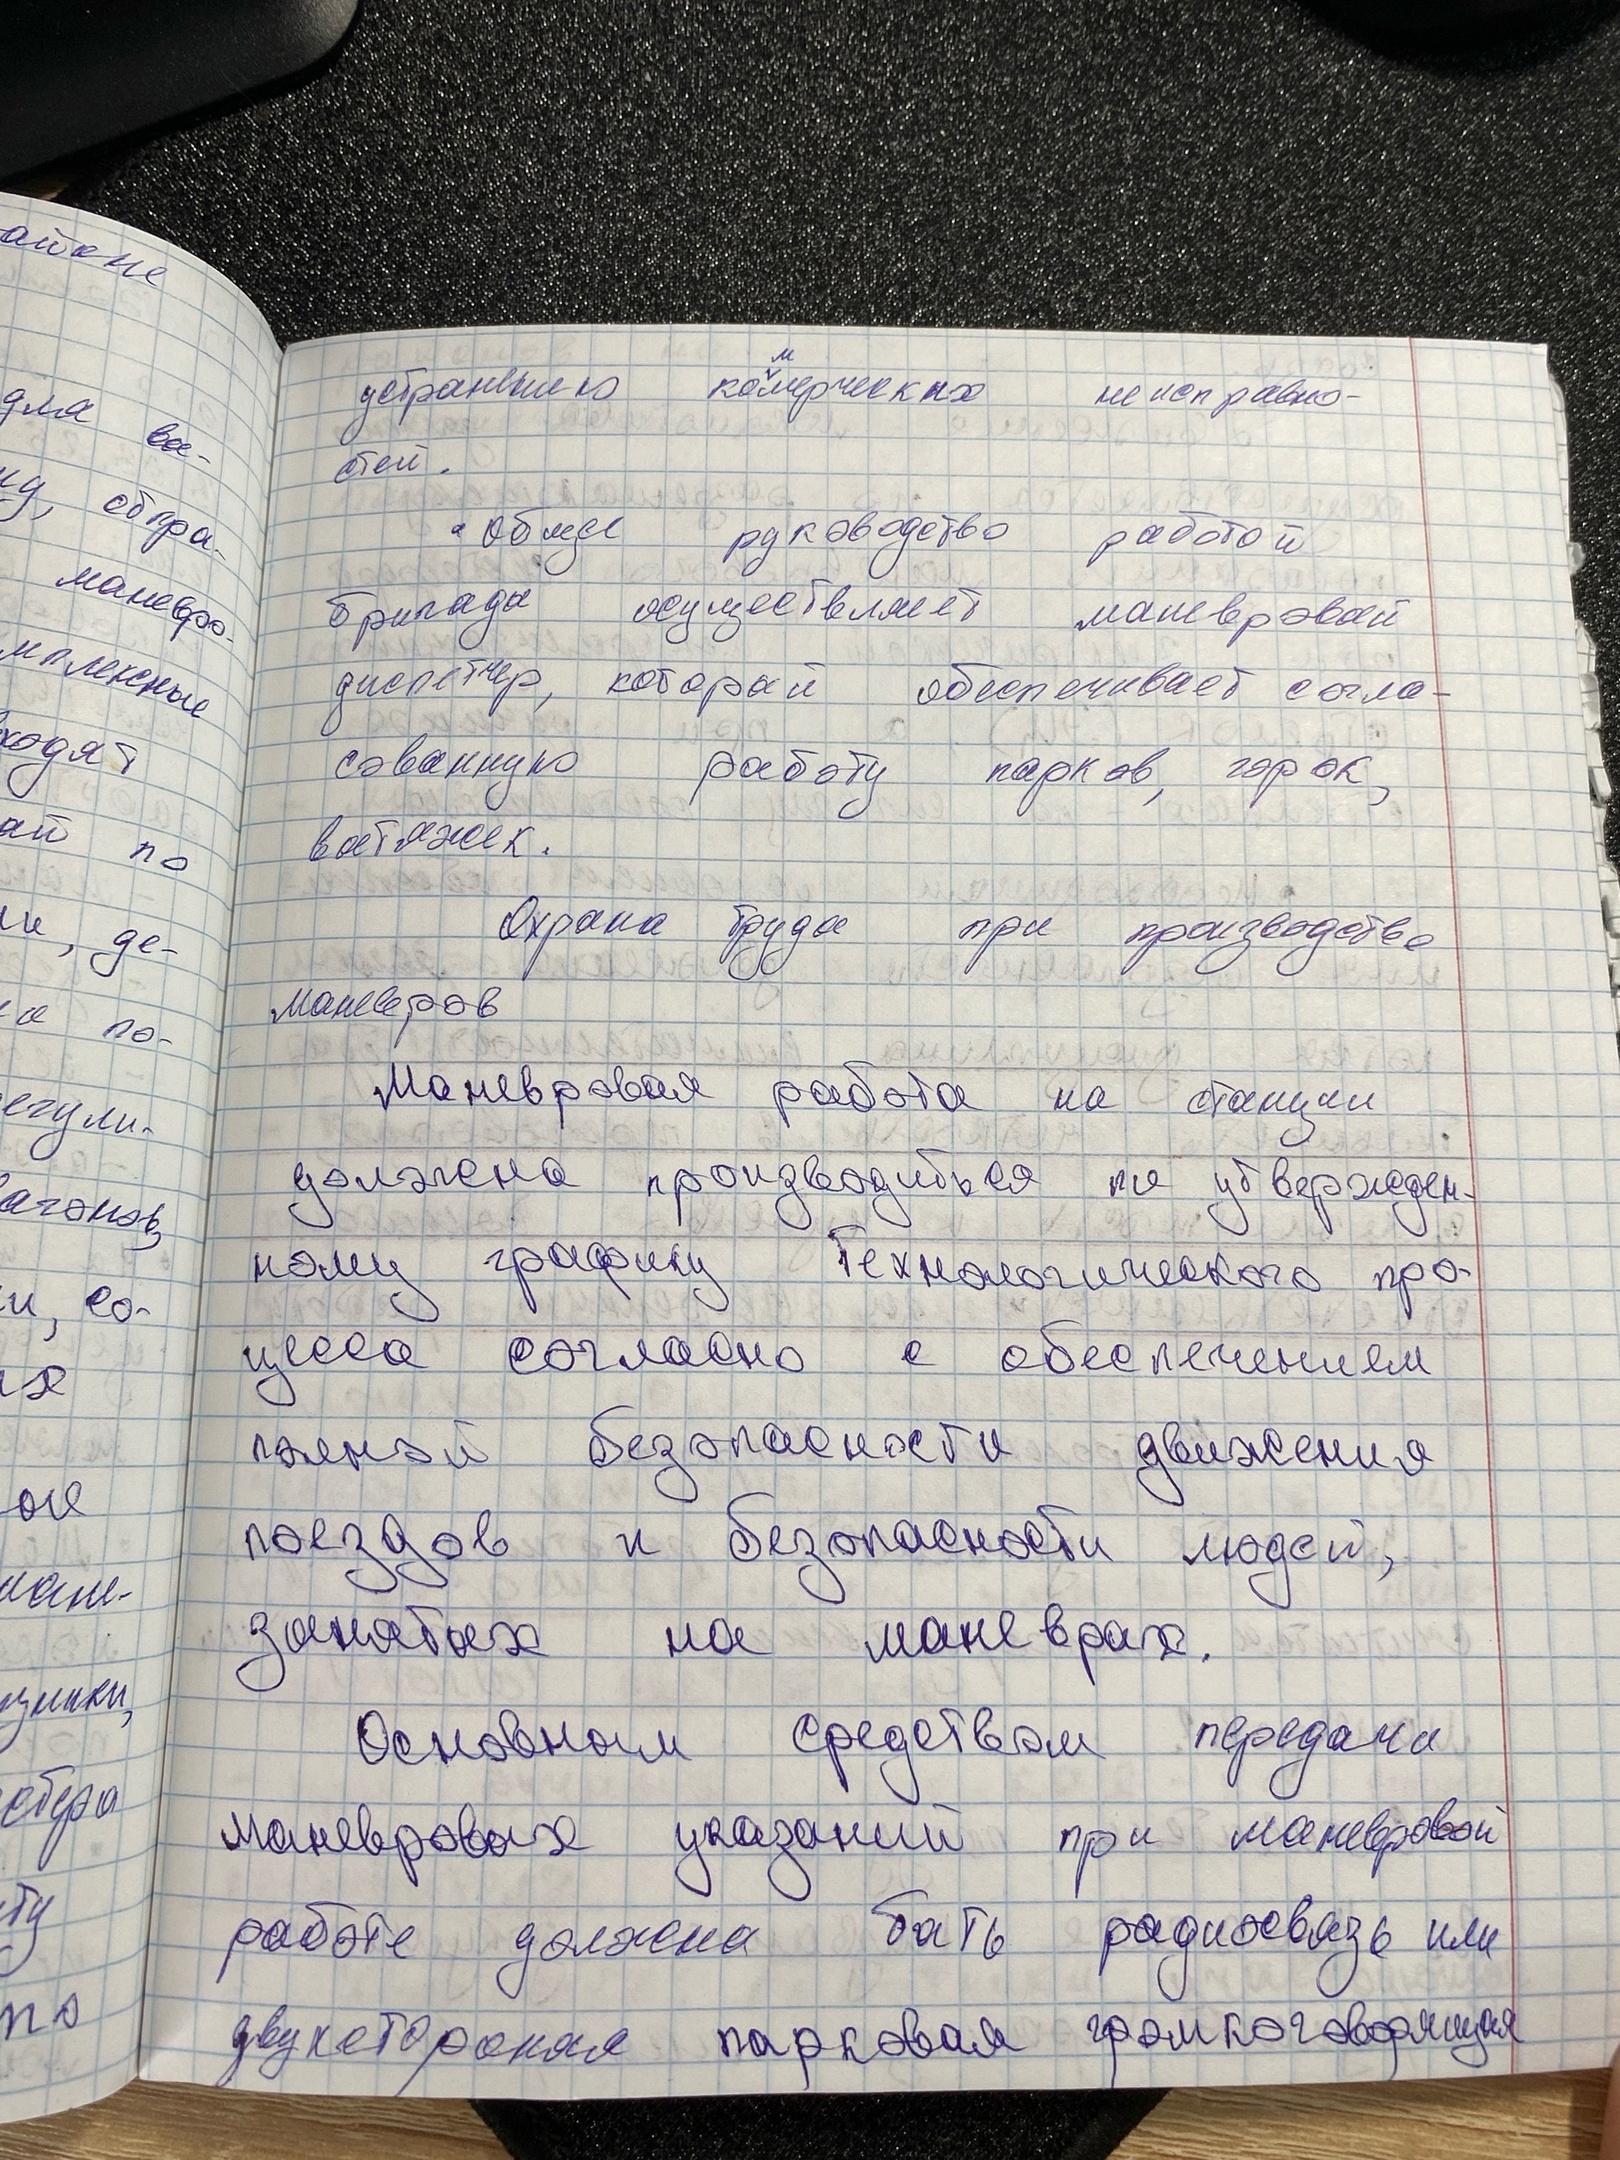 айоне
для ва-
ну, сбора-
маневро-
мплексные
ходят
ай по
ии, де-
на по-
егули-
вагонов,
и, со-
их
ое
мане-
зчики,
ту
по
устранению коммерческих неисправно-
стей.
Общее руководство работой
бригады осуществляет маневровый
диспетчер, который обеспечивает согла-
сованную работу парков, горок,
вытяжек.
Охрана труда при производстве
маневров
Маневровая работа на станции
должна производиться по утвержден-
ному графику Технологического про-
цесса согласно с обеспечением
полной безопасности движения
поездов и безопасности людей,
занятых на маневрах.
Основным средством передачи
маневровых указаний при маневровой
работе должна быть радиосвязь или
двухсторонняя парковая громкоговорящая